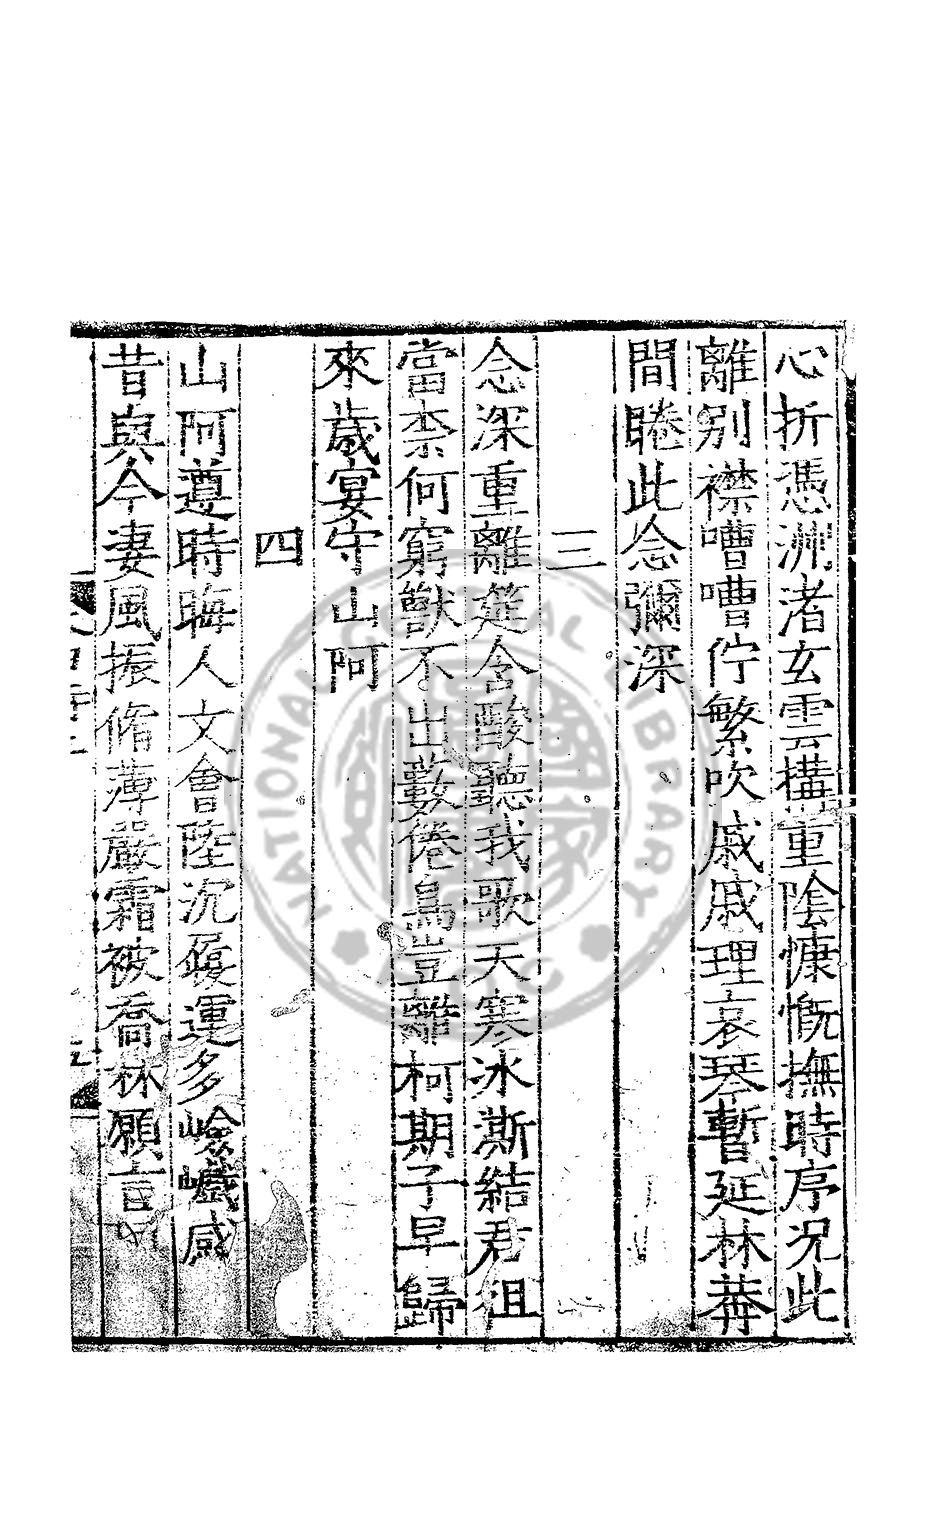 心折憑洲渚玄雲搆重陰慷慨撫時序況此
離別襟嘈嘈佇繁吹戚戚理哀琴暫延林莽
間睠此念彌深
三
念深重離筵含酸聽我歌天寒冰澌結君徂
當柰何窮獸不出藪倦鳥豈離柯期子早歸
來歲宴守山阿
四
山阿遵時晦人文會陸沉履運多嶮巇感
昔與今妻風振脩薄嚴霜被喬林願言
NATIONAL CENTRAL LIBRARY